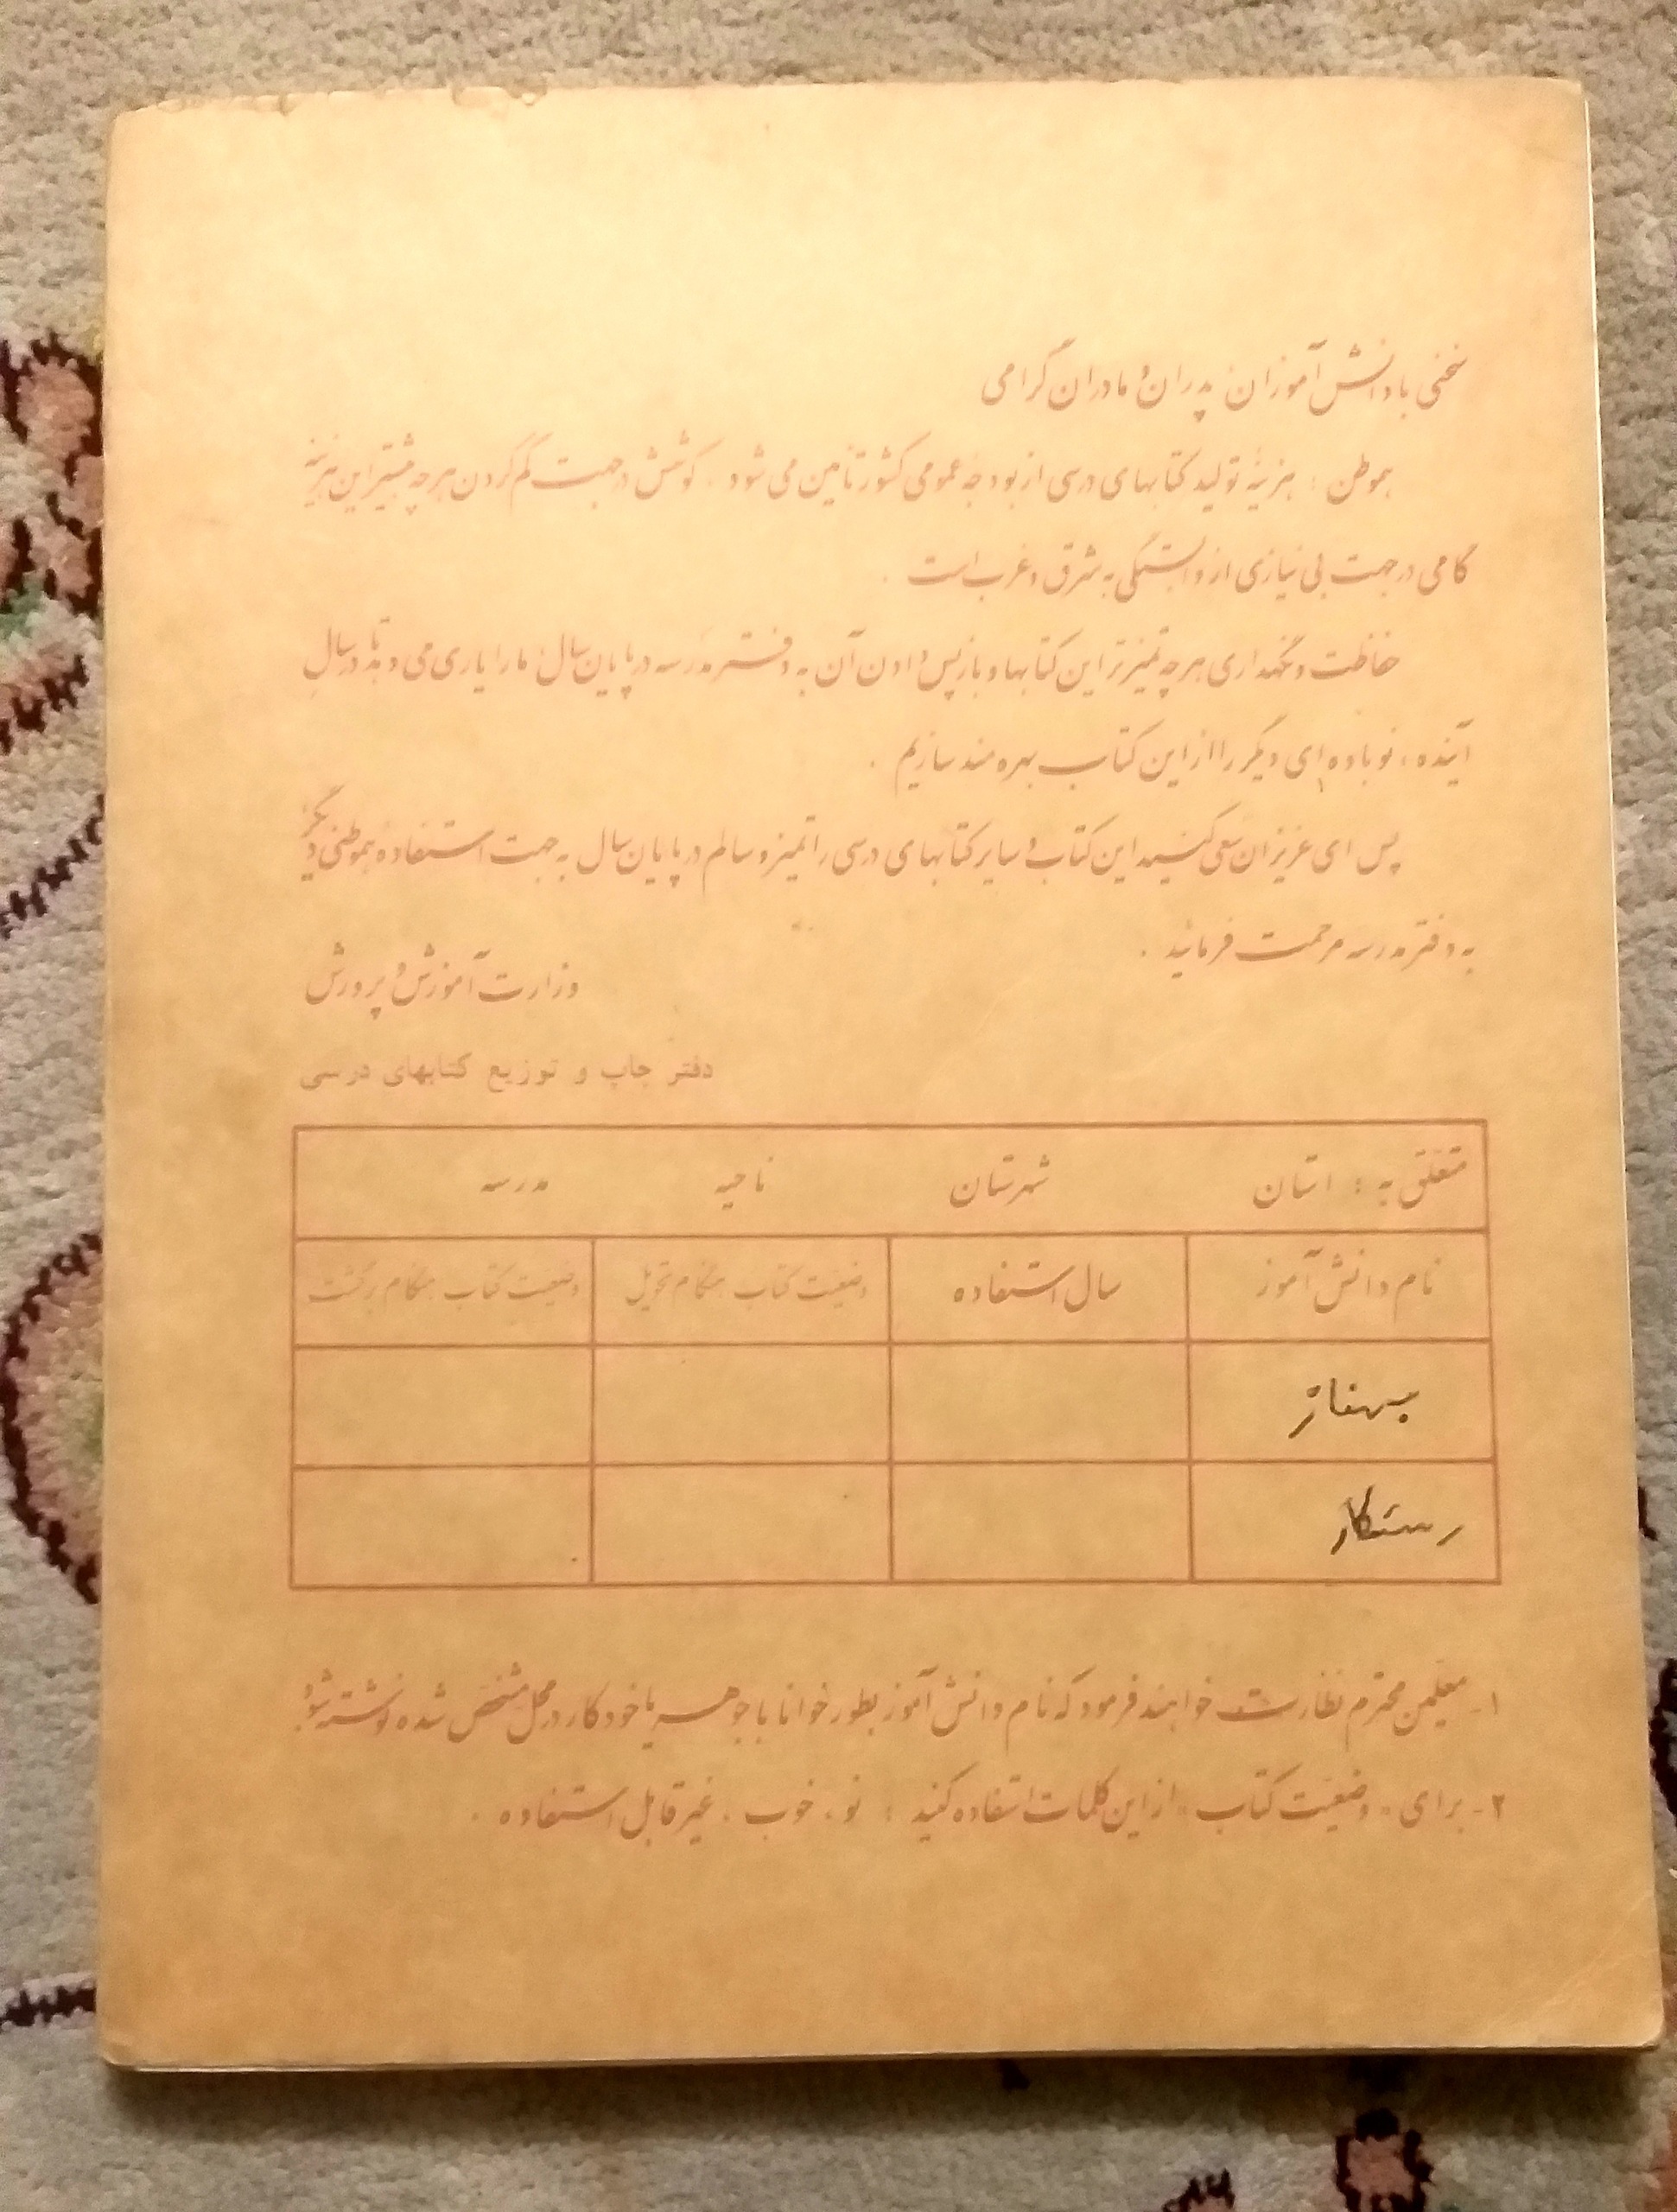 سخنی با دانش آموزان، پدران و مادران گرامی
هموطن : هزینهٔ تولید کتابهای درسی از بودجه عمومی کشور تأمین می شود . کوشش در جهت کم کردن هر چه بیشتر این هزینه
گامی در جهت بی نیازی از وابستگی به شرق و غرب است .
حفاظت و نگهداری هر چه تمیزتر این کتابها و بازپس دادن آن به دفتر مدرسه در پایان سال، ما را یاری می دهد تا در سال
آینده، نوباوه ای دیگر را از این کتاب بهره مند سازیم .
پس ای عزیزان سعی کنید این کتاب و سایر کتابهای درسی را تمیز و سالم در پایان سال به جهت استفاده هموطنی دیگر
به دفتر مدرسه مرحمت فرمائید .
وزارت آموزش و پرورش
دفتر چاپ و توزیع کتابهای درسی
متعلق به : استان شهرستان ناحیه مدرسه
نام دانش آموز سال استفاده وضعیت کتاب هنگام تحویل وضعیت کتاب هنگام برگشت
بهناز
رستگار
۱- معلمین محترم نظارت خواهند فرمود که نام دانش آموز بطور خوانا با جوهر یا خودکار در محل مشخص شده نوشته شود.
۲- برای «وضعیت کتاب» از این کلمات استفاده کنید : نو، خوب، غیر قابل استفاده .